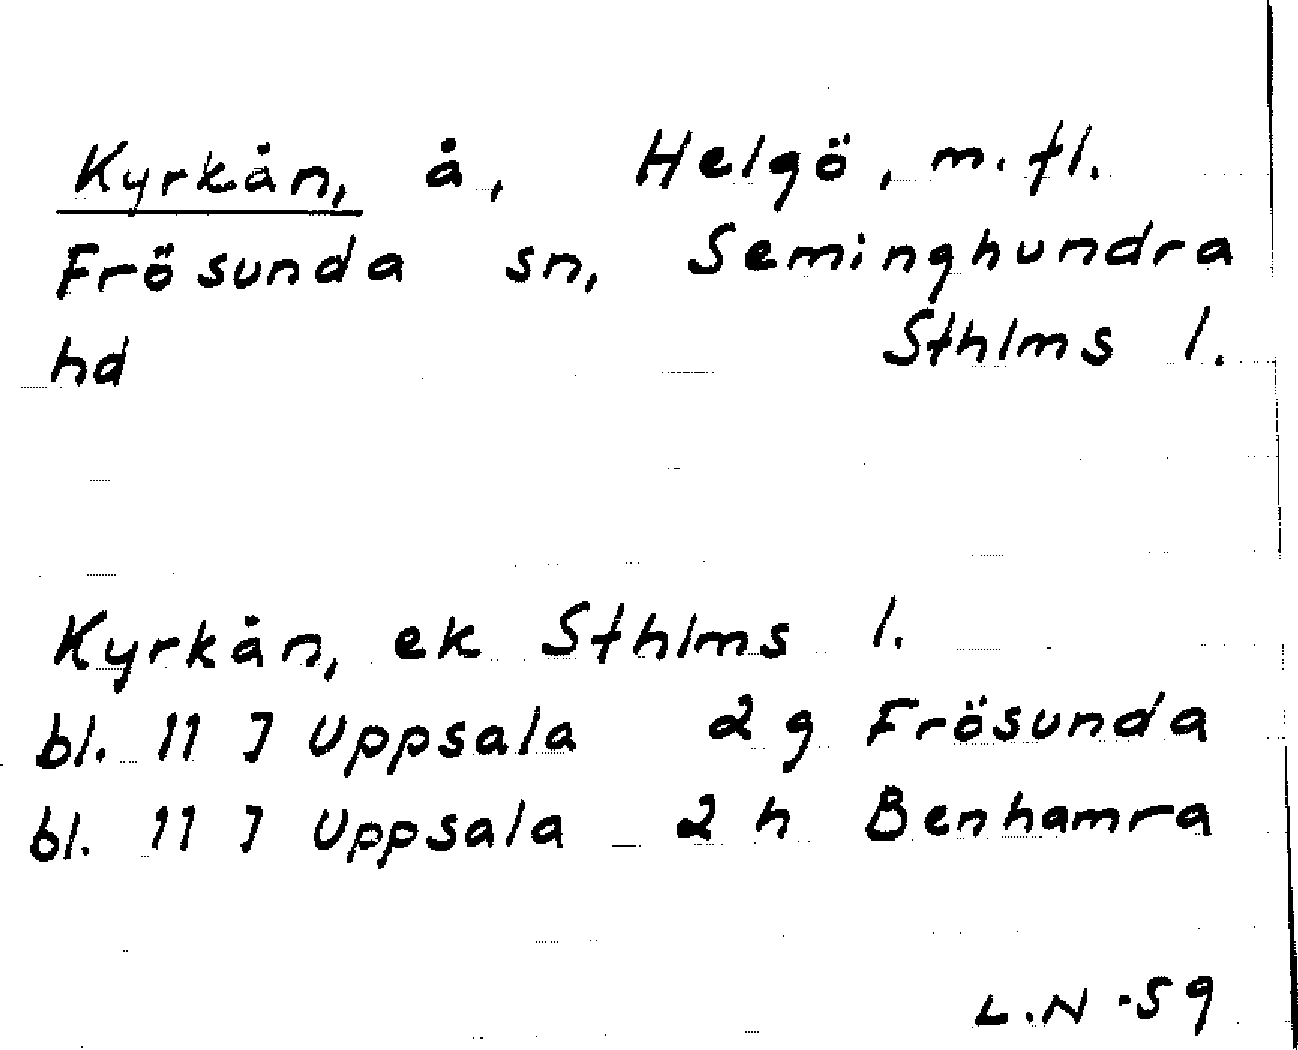 Kyrkån, å, Helgö, m.fl.
Frösunda sn, Seminghundra
hd Sthlms l.
Kyrkån, ek Sthlms l.
bl. 11 J Uppsala 2 g Frösunda
bl. 11 J Uppsala 2 h Benhamra
L.N -59